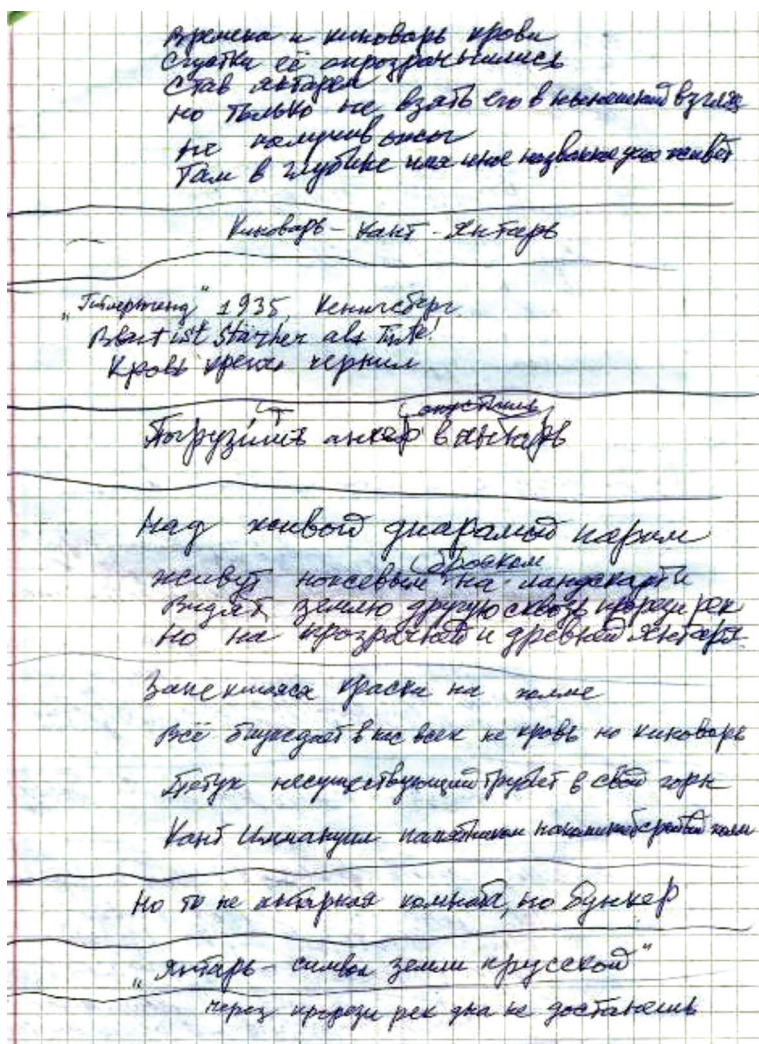 Времена и киноварь крови
Сгустки её опрозрачнились
Став янтарём
но только не взять его в нынешний взгляд
не получив ожог
Там в глубине имя иное названное уже живёт
Киноварь – Кант – Янтарь
1935, Кенигсберг
Blut ist Stärker als Tinte!
Кровь крепче чернил
опустить
Погрузить анкер в янтарь
Над живой диарамой парим
живут на ландскарте
Видят землю другую сквозь прорези рек
Но на прозрачной и древней Янтаря
Запекшаяся краска на холме
Всё блуждает в нас всех не кровь но киноварь
Петух несуществующий трубит в свой горн
Кант Иммануил памятником
Но то не янтарная комната, но бункер
"Янтарь – символ земли прусской"
через прорези рек дна не достанешь